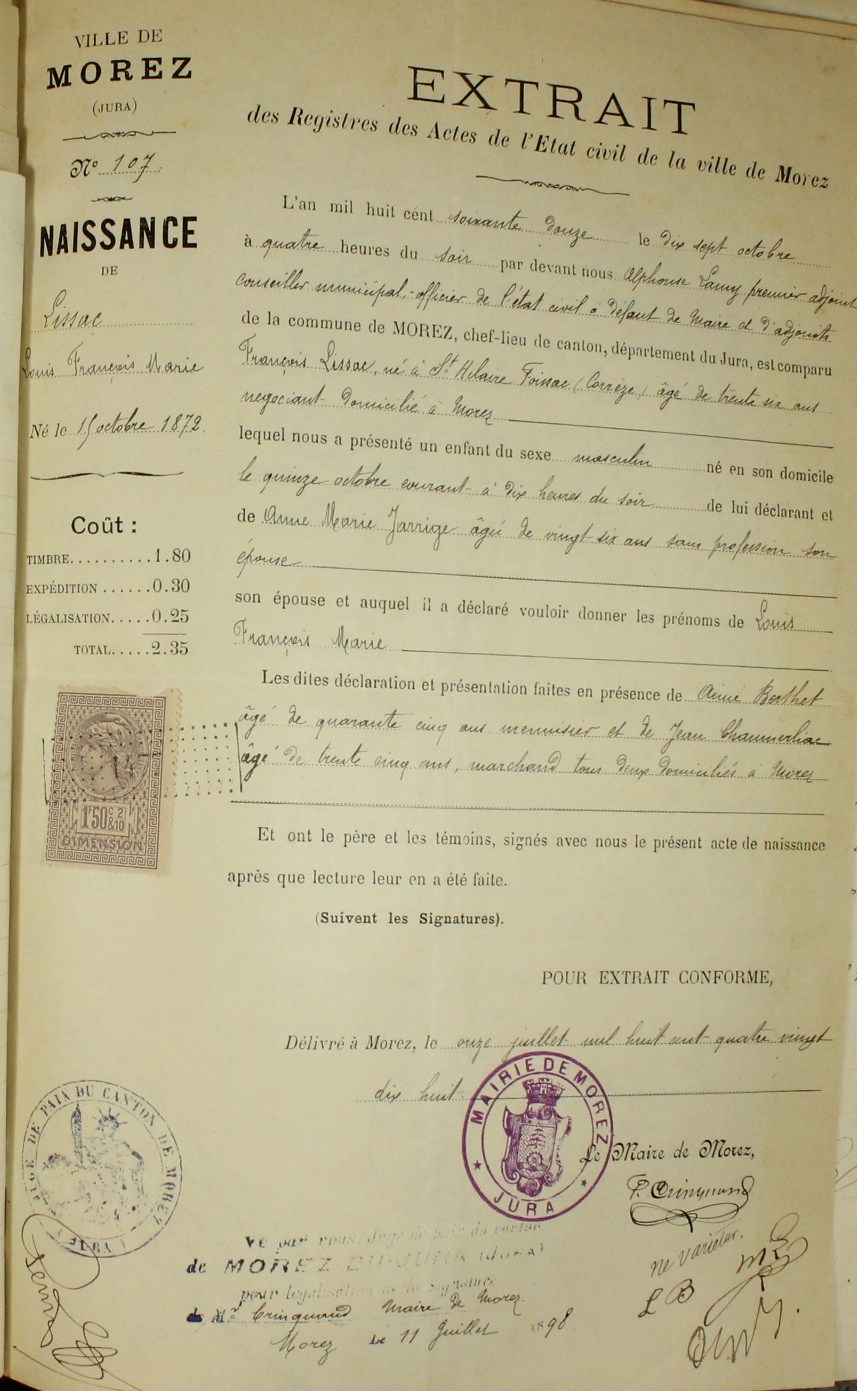 VILLE DE
MOREZ
(JURA)
No 107
NAISSANCE
DE
Lissac
Louis François Marie
Né le 15 octobre 1872
Coût :
TIMBRE..........1.80
EXPÉDITION......0.30
LÉGALISATION.....0.25
TOTAL.....2.35
1F50C 2/10
DIMENSION
EXTRAIT
des Registres des Actes de l'Etat civil de la ville de Morez
L'an mil huit cent soixante douze le dix sept octobre
à quatre heures du soir par devant nous Alphonse Lamy premier adjoint
conseiller municipal, officier de l'état civil à défaut de Maire et d'adjoints
de la commune de MOREZ, chef-lieu de canton, département du Jura, est comparu
François Lissac, né à St Hilaire Foissac (Corrèze) âgé de trente six ans
negociant domicilié à Morez
lequel nous a présenté un enfant du sexe masculin né en son domicile
le quinze octobre courant à dix heures du soir de lui déclarant et
de Anne Marie Jarrige âgée de vingt six ans sans profession son
épouse
son épouse et auquel il a déclaré vouloir donner les prénoms de Louis
François Marie
Les dites déclaration et présentation faites en présence de Aimé Berthet
âgé de quarante cinq ans menuisier et de Jean Chaumerliac
âgé de trente cinq ans, marchand tous deux domiciliés à Morez
Et ont le père et les témoins, signés avec nous le présent acte de naissance
après que lecture leur en a été faite.
(Suivent les Signatures).
POUR EXTRAIT CONFORME,
Délivré à Morez, le onze juillet mil huit cent quatre vingt
dix huit
MAIRIE DE MOREZ
JURA
Le Maire de Morez,
P. Crinquand
JUGE DE PAIX DU CANTON DE MOREZ
(JURA)
Vu par nous, Juge de paix du canton
de MOREZ-DU-JURA (Jura)
pour légalisation de la signature
de Mr Crinquand Maire de Morez
Morez le 11 Juillet 1898
ne varietur
L B